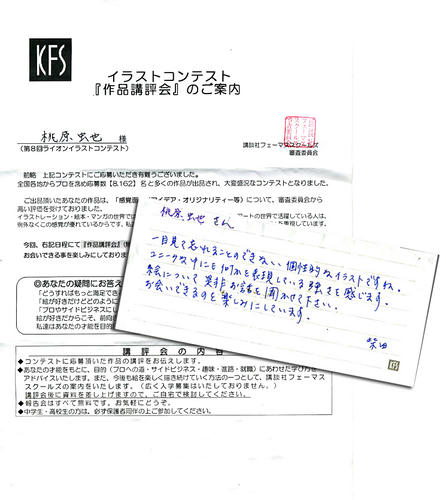 KFS
イラストコンテスト
『作品講評会』のご案内
桃原虫也 様
(第8回ライオンイラストコンテスト)
講談社フェーマススクールズ
審査委員会
前略 上記コンテストにご応募いただき有難うございました。
全国各地からプロを含め応募数【8,162】名と多くの作品が出品され、大変盛況なコンテストとなりました。
ご出品頂いたあなたの作品は、「感覚面
アイデア・オリジナリティー等)について、審査委員から
高い評価を受けておりました。
イラストレーション・絵本・マンガの世界では
アートの世界で活躍している人は、
例外なくこの感覚が優れているからです。
今回、右記日程にて『作品講評会』
お会いできる事を楽しみにしております
桃原虫也さん
一目見て忘れることのできない、個性的なイラストですね。
ユニークな中にも何かを表現している強さを感じます。
絵について是非お話を聞かせて下さい。
お会いできるのを楽しみにしています。
柴田
◎あなたの疑問にお答え
「どうすればもっと満足でき
「絵が好きだけどどのように
「プロやサイドビジネスに
絵が好きだからこそ、前向
私達はあなたの才能を目的
講評会の内容
◆コンテストに応募頂いた作品の講評をお伝えします。
◆あなたの才能をもとに、目的(プロへの道・サイドビジネス・趣味・進路・就職)にあわせた学び方を
アドバイスいたします。また、今後も絵を楽しく描き続けていく方法の一つとして、講談社フェーマス
スクールズの案内をいたします。(広く入学募集はいたしておりません。)
講評会後に資料を差し上げますので、ご自宅で検討してください。
◆報告会はすべて無料です。お気軽にどうぞ。
◆中学生・高校生の方は、必ず保護者同伴の上ご参加してください。